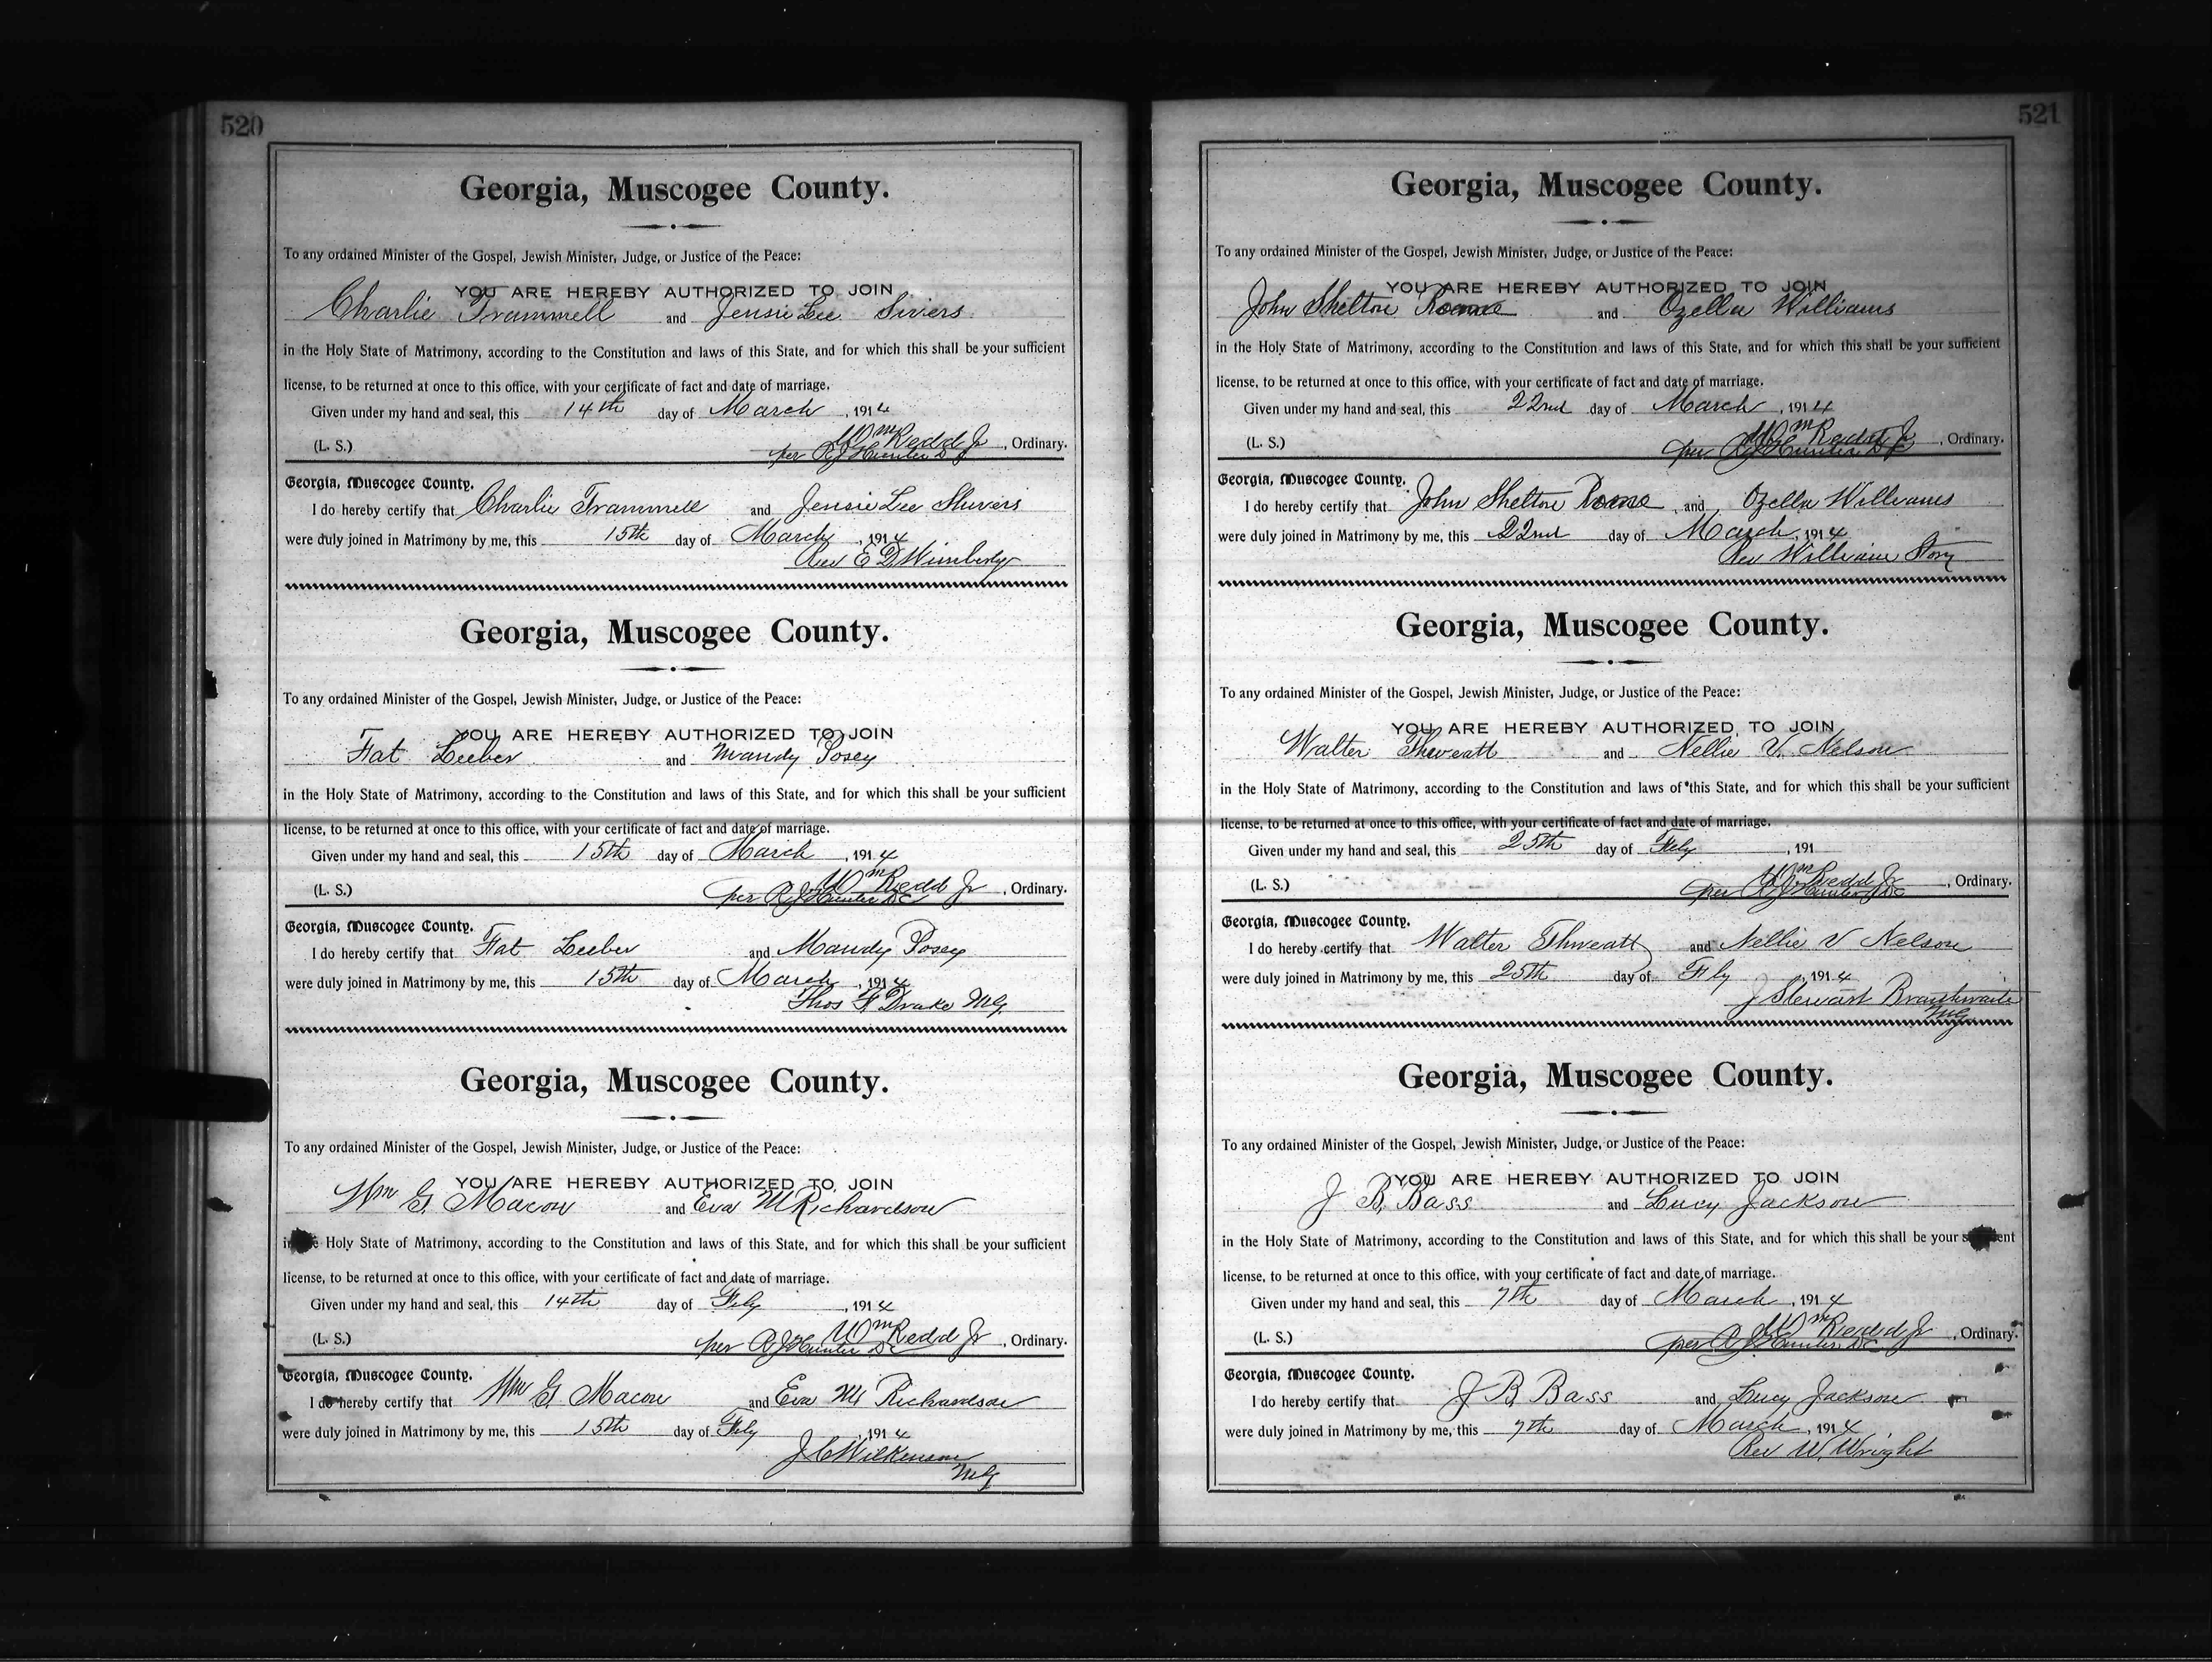 520
Georgia, Muscogee County.
To any ordained Minister of the Gospel, Jewish Minister, Judge, or Justice of the Peace:
YOU ARE HEREBY AUTHORIZED TO JOIN
Charlie Trammell and Jensie Lee Sivers
in the Holy State of Matrimony, according to the Constitution and laws of this State, and for which this shall be your sufficient
license, to be returned at once to this office, with your certificate of fact and date of marriage.
Given under my hand and seal, this 14th day of March, 1914
(L. S.) Wm Redd Jr, Ordinary.
per R J Hunter D C
Georgia, Muscogee County.
I do hereby certify that Charlie Trammell and Jensie Lee Shivers
were duly joined in Matrimony by me, this 15th day of March, 1914
Rev E D Wimberly
Georgia, Muscogee County.
To any ordained Minister of the Gospel, Jewish Minister, Judge, or Justice of the Peace:
YOU ARE HEREBY AUTHORIZED TO JOIN
Fat Leeber and Mandy Posey
in the Holy State of Matrimony, according to the Constitution and laws of this State, and for which this shall be your sufficient
license, to be returned at once to this office, with your certificate of fact and date of marriage.
Given under my hand and seal, this 15th day of March, 1914
(L. S.) Wm Redd Jr, Ordinary.
per R J Hunter D C
Georgia, Muscogee County.
I do hereby certify that Fat Leeber and Mandy Posey
were duly joined in Matrimony by me, this 15th day of March, 1914
Thos F Drake M.G.
Georgia, Muscogee County.
To any ordained Minister of the Gospel, Jewish Minister, Judge, or Justice of the Peace:
YOU ARE HEREBY AUTHORIZED TO JOIN
Wm G. Macon and Eva M Richardson
Holy State of Matrimony, according to the Constitution and laws of this State, and for which this shall be your sufficient
license, to be returned at once to this office, with your certificate of fact and date of marriage.
Given under my hand and seal, this 14th day of Feby, 1914
(L. S.) Wm Redd Jr, Ordinary.
per R J Hunter D C
Georgia, Muscogee County.
I do hereby certify that Wm G. Macon and Eva M Richardson
were duly joined in Matrimony by me, this 15th day of Feby, 1914
J C Wilkinson
M G
521
Georgia, Muscogee County.
To any ordained Minister of the Gospel, Jewish Minister, Judge, or Justice of the Peace:
YOU ARE HEREBY AUTHORIZED TO JOIN
John Shelton Roane and Ozella Williams
in the Holy State of Matrimony, according to the Constitution and laws of this State, and for which this shall be your sufficient
license, to be returned at once to this office, with your certificate of fact and date of marriage.
Given under my hand and seal, this 22nd day of March, 1914
(L. S.) Wm Redd Jr, Ordinary.
per R J Hunter D C
Georgia, Muscogee County.
I do hereby certify that John Shelton Roane, and, Ozella Williams
were duly joined in Matrimony by me, this 22nd day of March, 1914
Rev William Story
Georgia, Muscogee County.
To any ordained Minister of the Gospel, Jewish Minister, Judge, or Justice of the Peace:
YOU ARE HEREBY AUTHORIZED TO JOIN
Walter Thweatt and Nellie V. Nelson
in the Holy State of Matrimony, according to the Constitution and laws of this State, and for which this shall be your sufficient
license, to be returned at once to this office, with your certificate of fact and date of marriage.
Given under my hand and seal, this 25th day of Feby, 191
(L. S.) Wm Redd Jr, Ordinary.
per R J Hunter D C
Georgia, Muscogee County.
I do hereby certify that Walter Thweatt and Nellie V Nelson
were duly joined in Matrimony by me, this 25th day of Feby, 1914
J Stewart Braithwaite
M G
Georgia, Muscogee County.
To any ordained Minister of the Gospel, Jewish Minister, Judge, or Justice of the Peace:
YOU ARE HEREBY AUTHORIZED TO JOIN
J B. Bass and Lucy Jackson
in the Holy State of Matrimony, according to the Constitution and laws of this State, and for which this shall be your
license, to be returned at once to this office, with your certificate of fact and date of marriage.
Given under my hand and seal, this 7th day of March, 1914
(L. S.) Wm Redd Jr, Ordinary.
per R J Hunter D C
Georgia, Muscogee County.
I do hereby certify that J B Bass and Lucy Jackson
were duly joined in Matrimony by me, this 7th day of March, 1914
Rev W. Wright